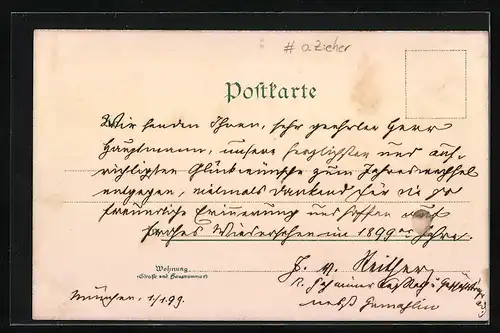 # a Zieher
Postkarte
Wir senden Ihnen, sehr geehrter Herr
Hauptmann, unsere herzlichsten und auf-
richtigsten Glückwünsche zum Jahreswechsel
entgegen, vielmals dankend für die so
freundliche Erinnerung und hoffen auf
frohes Wiedersehen im 1899er Jahre.
Wohnung
(Straße und Hausnummer)
München, 1/1.99.
nebst Gemahlin